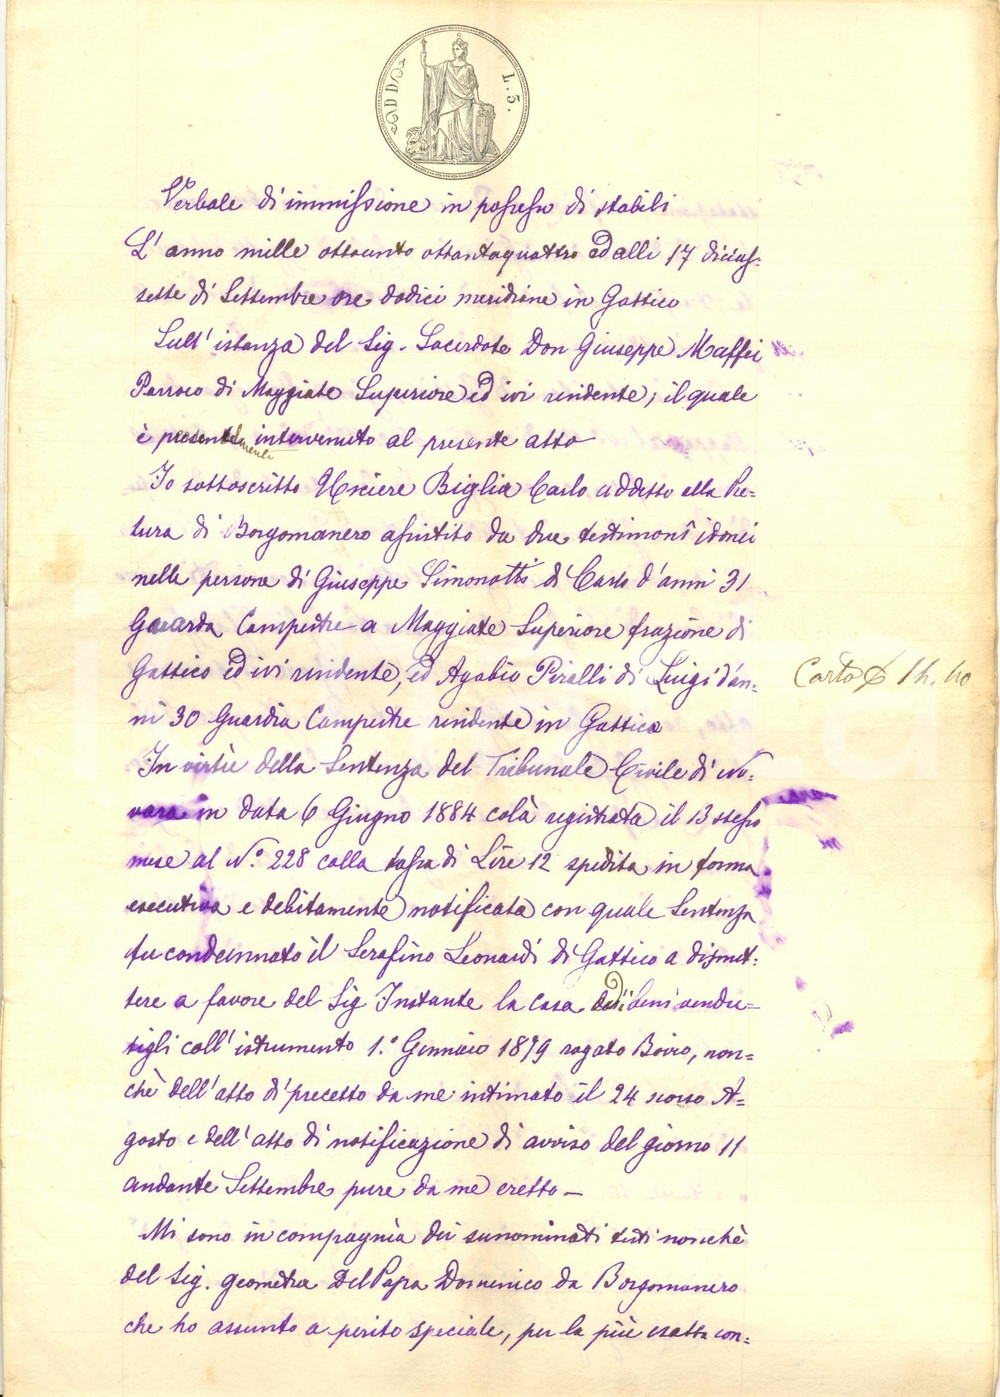 L. 3.
Verbale di immissione in possesso di stabili
L'anno mille ottocento ottantaquattro ed alli 17 dicias-
sette di Settembre ore dodici meridiane in Gattico
Sull'istanza del Sig. Sacerdote Don Giuseppe Maffei
Parroco di Maggiate Superiore ed ivi residente, il quale
è presentemente intervenuto al presente atto
Io sottoscritto Usciere Biglia Carlo addetto alla Pre-
tura di Borgomanero assistito da due testimoni idonei
nelle persone di Giuseppe Simonotti di Carlo d'anni 31
Guarda Campestre a Maggiate Superiore frazione di
Gattico ed ivi residente, ed Agabio Piralli di Luigi d'an-
ni 30 Guardia Campestre residente in Gattico
In virtù della Sentenza del Tribunale Civile di No-
vara in data 6 Giugno 1884 colà registrata il 13 stesso
mese al N.° 228 colla tassa di Lire 12 spedita in forma
esecutiva e debitamente notificata con quale Sentenza
fu condannato il Serafino Leonardi di Gattico a dismet-
tere a favore del Sig Instante la casa beni vendu-
tigli coll'istrumento 1.° Gennaio 1879 rogato Boiro, non-
chè dell'atto di precetto da me intimato il 24 scorso A-
gosto e dell'atto di notificazione di avviso del giorno 11
andante Settembre pure da me eretto -
Mi sono in compagnia dei sunominati testi nonchè
del Sig. geometra Del Papa Domenico da Borgomanero
che ho assunto a perito speciale, per la più esatta con-
Carta